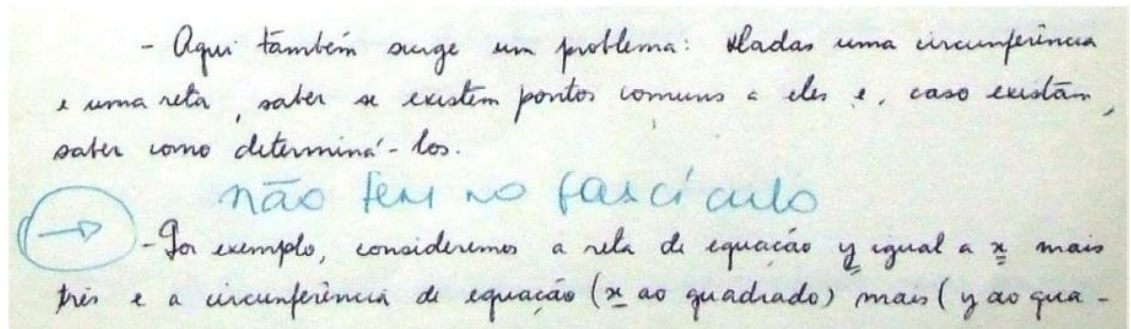 - Aqui também surge um problema: Dadas uma circunferência
e uma reta, saber se existem pontos comuns a eles e, caso existam,
saber como determiná-los.
não tem no fascículo
- Por exemplo, consideremos a reta de equação y igual a x mais
três e a circunferência de equação (x ao quadrado) mais (y ao qua-